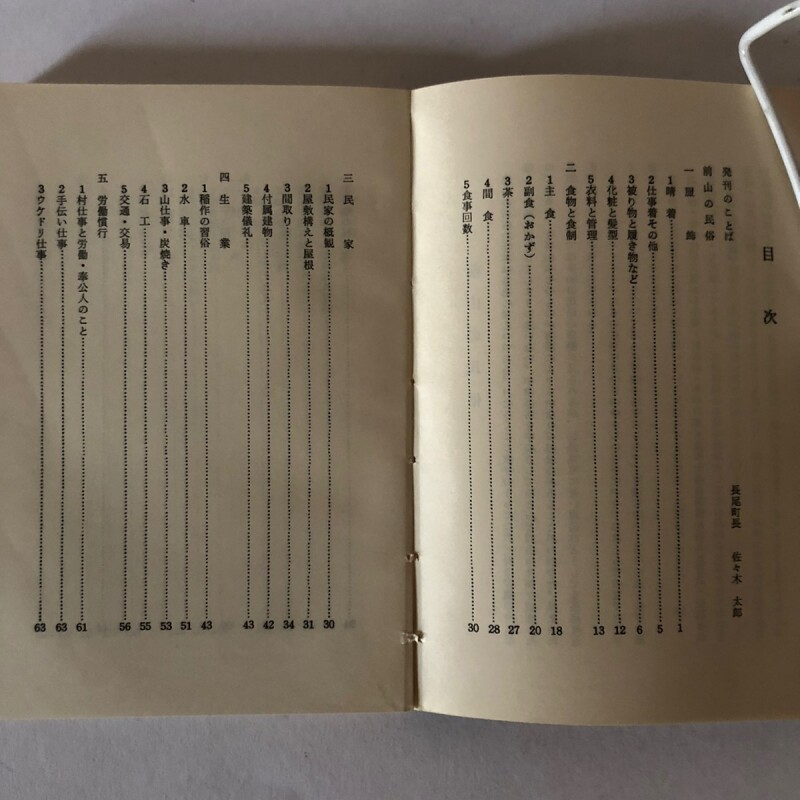 目次
発刊のことば 長尾町長 佐々木 太郎
前山の民俗
一 服飾
1 晴着 1
2 仕事着その他 5
3 被り物と履き物など 6
4 化粧と髪型 12
5 衣料と管理 13
二 食物と食制
1 主食 18
2 副食(おかず) 20
3 茶 27
4 間食 28
5 食事回数 30
三 民家
1 民家の概観 30
2 屋敷構えと屋根 31
3 間取り 34
4 付属建物 42
5 建築儀礼 43
四 生業
1 稲作の習俗 43
2 水車 51
3 山仕事・炭焼き 53
4 石工 55
5 交通・交易 56
五 労働慣行
1 村仕事と労働・奉公人のこと 61
2 手伝い仕事 63
3 ウケドリ仕事 63